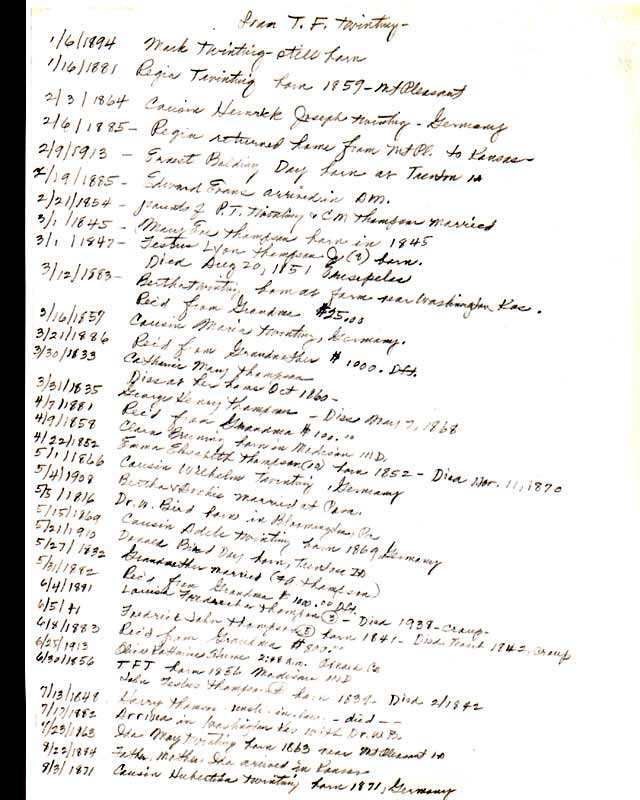 T. F. Twinting-
1/6/1894 Mark Twinting - still born
1/16/1881 Regin Twinting born 1859 - Mt Pleasant
2/3/1864 Cousin Joseph Twinting - Germany
2/6/1885 - Regin returned home from Mt Pl. to Kansas -
2/9/5913 - Ernest Balding Day born at Trenton Ia
2/19/1885 - Edward Evans arrived in D.M.
2/21/1854 - parents of P.T. Twinting & C M Thompson Married
3/1/1845 - Mary Thompson born in 1845
3/1/1847 - Festus Lyon Thompson born.
Died Aug 20, 1851
3/12/1883 - Bertha Twinting born at farm near Washington, Kas.
Rec'd from Grandma $25.00
3/16/1857 Cousin Maria Twinting, Germany.
3/21/1886 Rec'd from Grandmother $1000. Dft.
3/30/1833 Catharine Mary Thompson
Dies at her home Oct 1860 -
3/31/1835 George Henry Thompson - Dies May 7, 1868
4/7/1881 Rec'd from Grandma $100.00
4/9/1858 Clara born in Madison MD.
4/22/1852 Emma Elizabeth Thompson (10) born 1852 - Died Nov. 11, 1870
5/1/1866 Cousin Wilhelm Twinting, Germany
5/4/1908 Bertha & married at
5/5/1816 Dr. W. Bird born in Bloomingdon, Pa
5/15/1869 Cousin Adele Twinting born 1869, Germany
5/21/1910 Donald Bird Day born, Trenton Ia
5/27/1832 Grandmother married (Thompson)
5/31/1882 Rec'd from Grandma $1000.00 Dft.
6/4/1881 Louisa Thompson (3) - Died 1938 - croup -
6/5/41 Fredrick John Thompson (5) born 1841 - Died 1842, Croup
6/8/1883 Rec'd from Grandma $500.00
6/25/1913 Olive Hume 2:48 a.m. Co
6/30/1856 TFT born 1856 Madison MD
John Festus Thompson born 1839 - Died 2/1842
7/13/1848 Harry - uncle-in-law - died - -
7/17/1882 Arrived in Washington Kas with Dr. W.B.
7/23/1863 Ida May Twinting born 1863 near Mt Pleasant Ia
8/22/1884 Father, Mother, Ida arrived in Kansas
8/3/1871 Cousin Hubertha Twinting born 1871, Germany